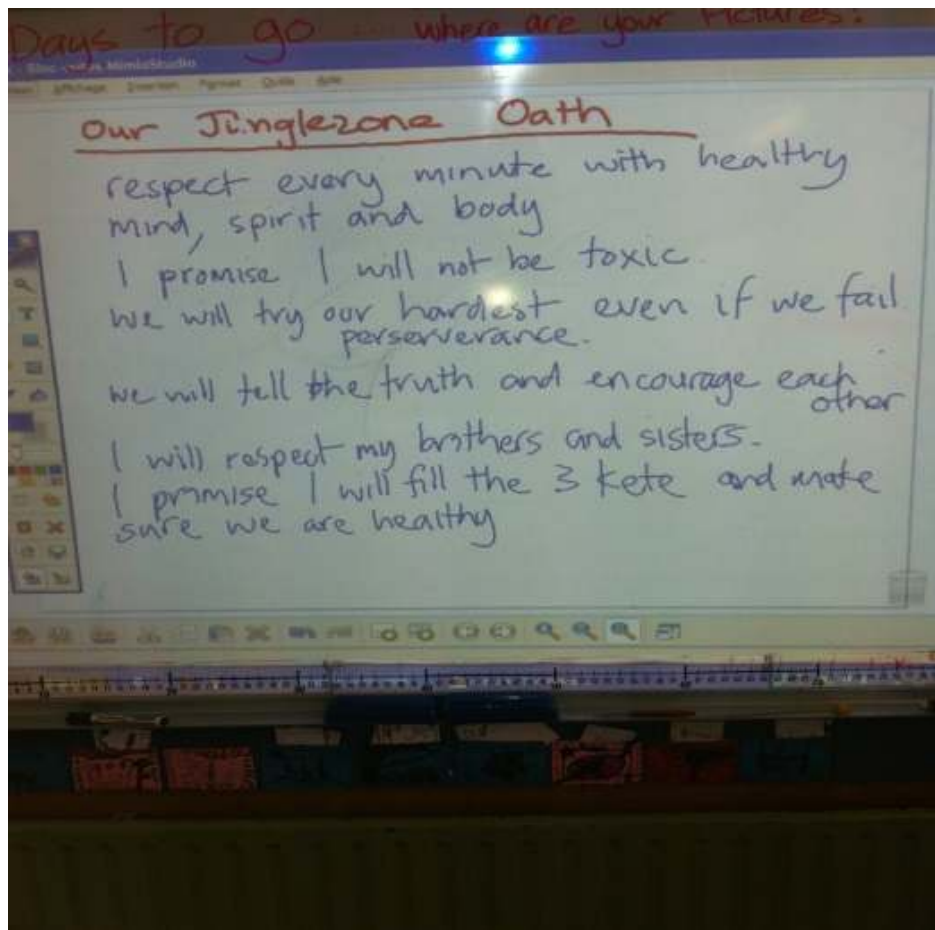 Days to go ... where are your Pictures?
MimioStudio
Affichage Insertion Format Outils Aide
Our Jinglezone Oath
respect every minute with healthy
mind, spirit and body
I promise I will not be toxic.
we will try our hardest even if we fail
perserverance.
we will tell the truth and encourage each
other
I will respect my brothers and sisters.
I promise I will fill the 3 kete and make
sure we are healthy